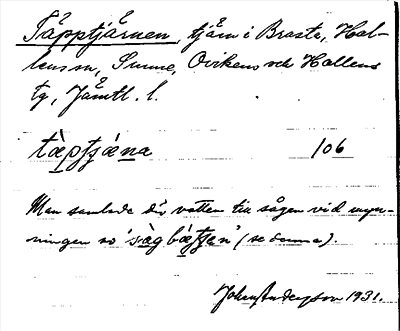 Täpptjärnen, tjärn i Brasta, Hal-
lens sn, Sunne, Ovikens och Hallens
tg, Jämtl. l.
tàptjǽna 106
Man samlade där vatten till sågen vid myr-
ningen so 'sàgbǽttjen' (se denna).
Johan Anderzson 1931.